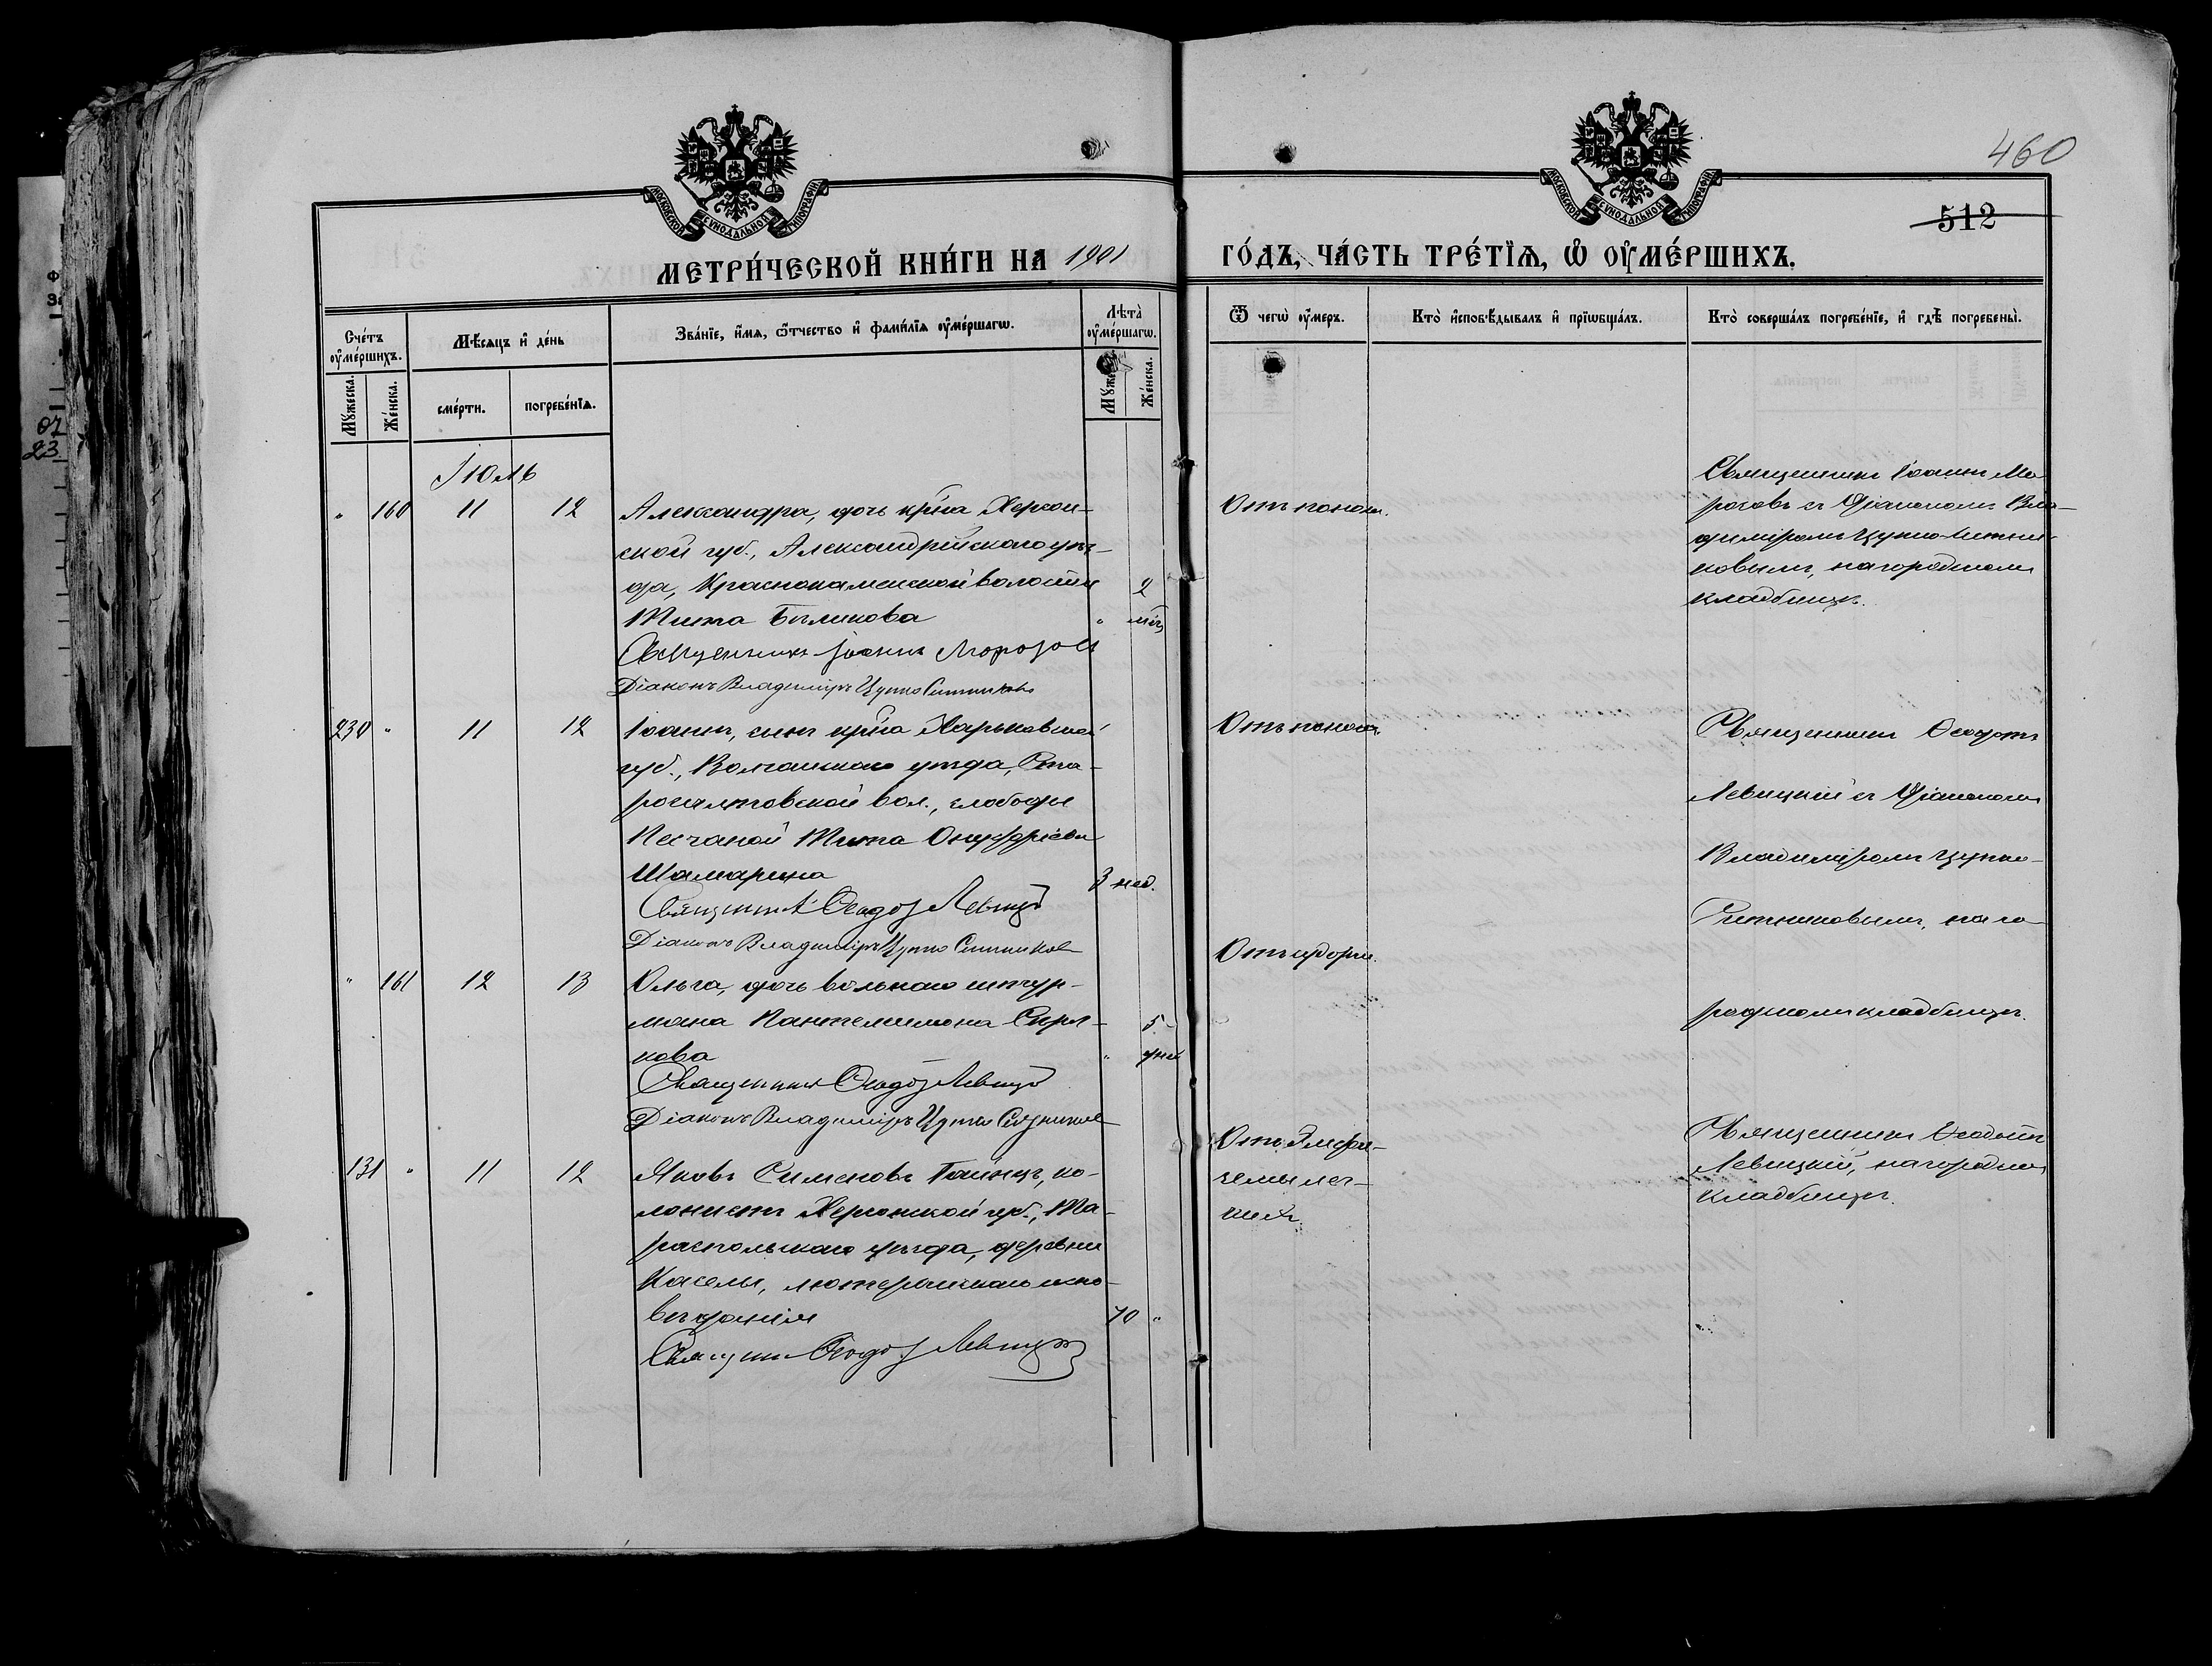 460
512
МОСКОВСКОЙ СѴНОДАЛЬНОЙ ТИПОГРАФІИ
МОСКОВСКОЙ СѴНОДАЛЬНОЙ ТИПОГРАФІИ
МЕТРИ́ЧЕСКОЙ КНИ́ГИ НА 1901 ГО́ДЪ, ЧА́СТЬ ТРЕ́ТЇѦ, Ѡ҆ ОУ҆МЕ́РШИХЪ.
Сче́тъ оу҆ме́ршихъ.
Мꙋжеска. Же́нска.
Мѣ́сѧцъ и҆ де́нь
сме́рти. погребе́нїѧ.
Зва́нїе, и҆́мѧ, ѻ҆́тчество и҆ фами́лїѧ оу҆ме́ршагѡ.
Лѣта̀ оу҆ме́ршагѡ.
Мꙋже Же́нска.
Ѿ чегѡ̀ оу҆́меръ.
Кто̀ и҆сповѣ́дывалъ и҆ прїѡбща́лъ.
Кто̀ соверша́лъ погребе́нїе, и҆ гдѣ̀ погребены̀.
Іюль
" 160 11 12
Александра, дочь кр-на Херсон-
ской губ., Александрійскаго уѣз-
да, Краснокаменской волости
Тита Быликова
" 2 мѣс.
Священникъ Іоаннъ Морозовъ
Діаконъ Владиміръ Цупко Ситников
Отъ понош.
Священникъ Іоаннъ Мо-
розовъ съ Діакономъ Вла-
диміромъ Цупко-Ситни-
ковымъ, на городскомъ
кладбищѣ.
230 " 11 12
Іоаннъ, сынъ кр-на Харьковской
губ., Волчанскаго уѣзда, Ста-
росалтовской вол., слободы
Песчаной Тита Онуфріева
Шамарина
3 нед.
Священникъ Ѳеодот Левицкій
Діаконъ Владиміръ Цупко Ситников
Отъ понош.
Священникъ Ѳеодотъ
Левицкій съ Діакономъ
Владиміромъ Цупко-
Ситниковымъ, на го-
родскомъ кладбищѣ.
" 161 12 13
Ольга, дочь вольнаго штур-
мана Пантелимона Сиря-
кова
" 5 дней
Священникъ Ѳеодот Левицкій
Діаконъ Владиміръ Цупко Ситников
131 " 11 12
Яковъ Сименовъ Гайнцъ, ко-
лонистъ Херсонской губ., Ти-
располскаго уѣзда, деревни
Каселы, лютеранскаго испо-
вѣданія
70 "
Священникъ Ѳеодот Левицкій
Отъ Эмфи-
земы лег-
кихъ
Священникъ Ѳеодотъ
Левицкій, на городскомъ
кладбищѣ.